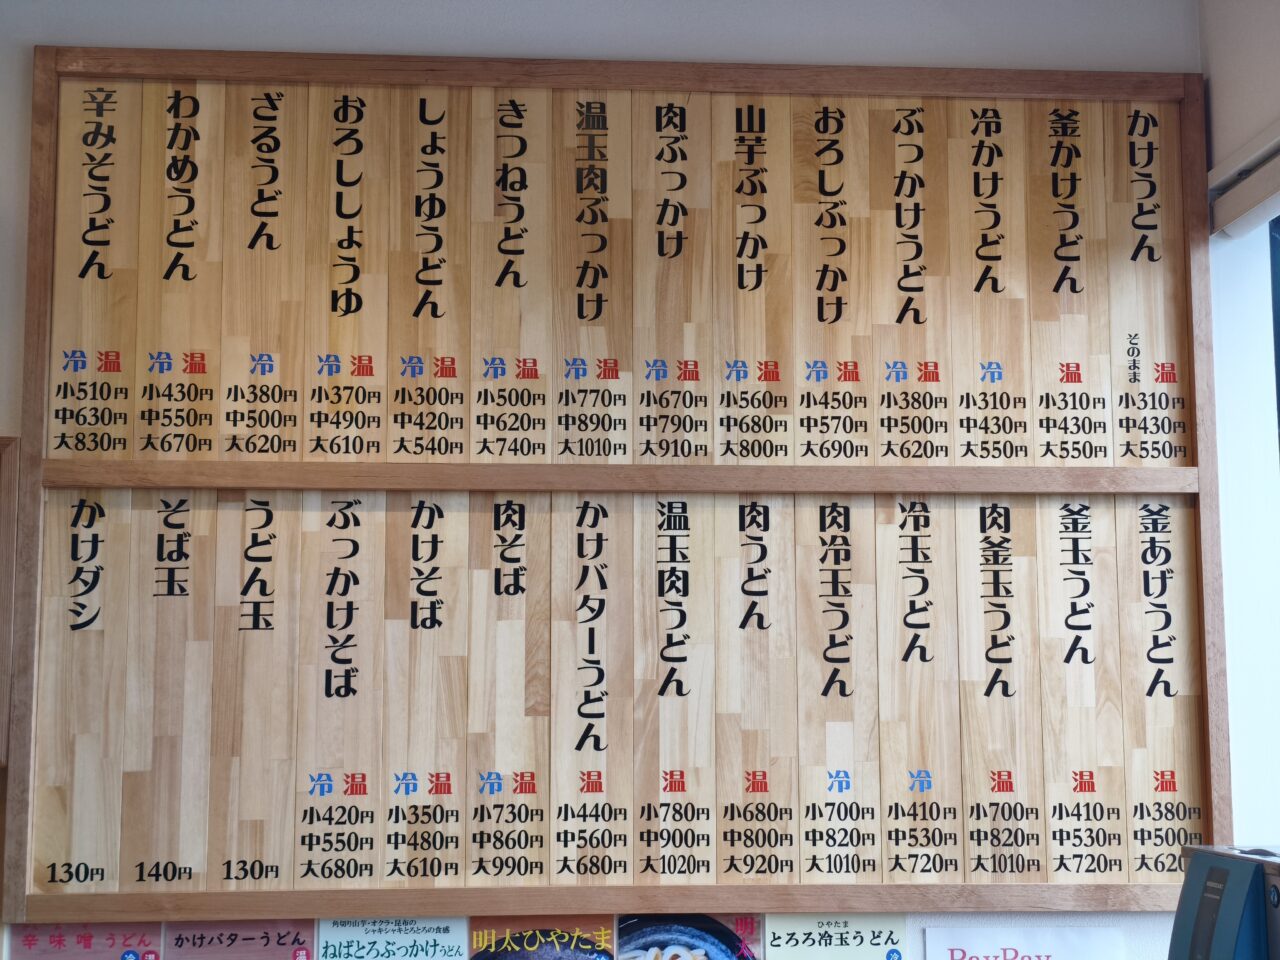 かけうどん
そのまま
温
小310円
中430円
大550円
釜かけうどん
温
小310円
中430円
大550円
冷かけうどん
冷
小310円
中430円
大550円
ぶっかけうどん
冷 温
小380円
中500円
大620円
おろしぶっかけ
冷 温
小450円
中570円
大690円
山芋ぶっかけ
冷 温
小560円
中680円
大800円
肉ぶっかけ
冷 温
小670円
中790円
大910円
温玉肉ぶっかけ
冷 温
小770円
中890円
大1010円
きつねうどん
冷 温
小500円
中620円
大740円
しょうゆうどん
冷 温
小300円
中420円
大540円
おろししょうゆ
冷 温
小370円
中490円
大610円
ざるうどん
冷
小380円
中500円
大620円
わかめうどん
冷 温
小430円
中550円
大670円
辛みそうどん
冷 温
小510円
中630円
大830円
釜あげうどん
温
小380円
中500円
大620
釜玉うどん
温
小410円
中530円
大720円
肉釜玉うどん
温
小700円
中820円
大1010円
冷玉うどん
冷
小410円
中530円
大720円
肉冷玉うどん
冷
小700円
中820円
大1010円
肉うどん
温
小680円
中800円
大920円
温玉肉うどん
温
小780円
中900円
大1020円
かけバターうどん
温
小440円
中560円
大680円
肉そば
冷 温
小730円
中860円
大990円
かけそば
冷 温
小350円
中480円
大610円
ぶっかけそば
冷 温
小420円
中550円
大680円
うどん玉
130円
そば玉
140円
かけダシ
130円
辛味噌うどん
冷 温
かけバターうどん
温
角切り山芋・オクラ・昆布の
シャキシャキとろとろの食感
ねばとろぶっかけうどん
明太ひやたま
明太
ひやたま
とろろ冷玉うどん
冷
PayPay